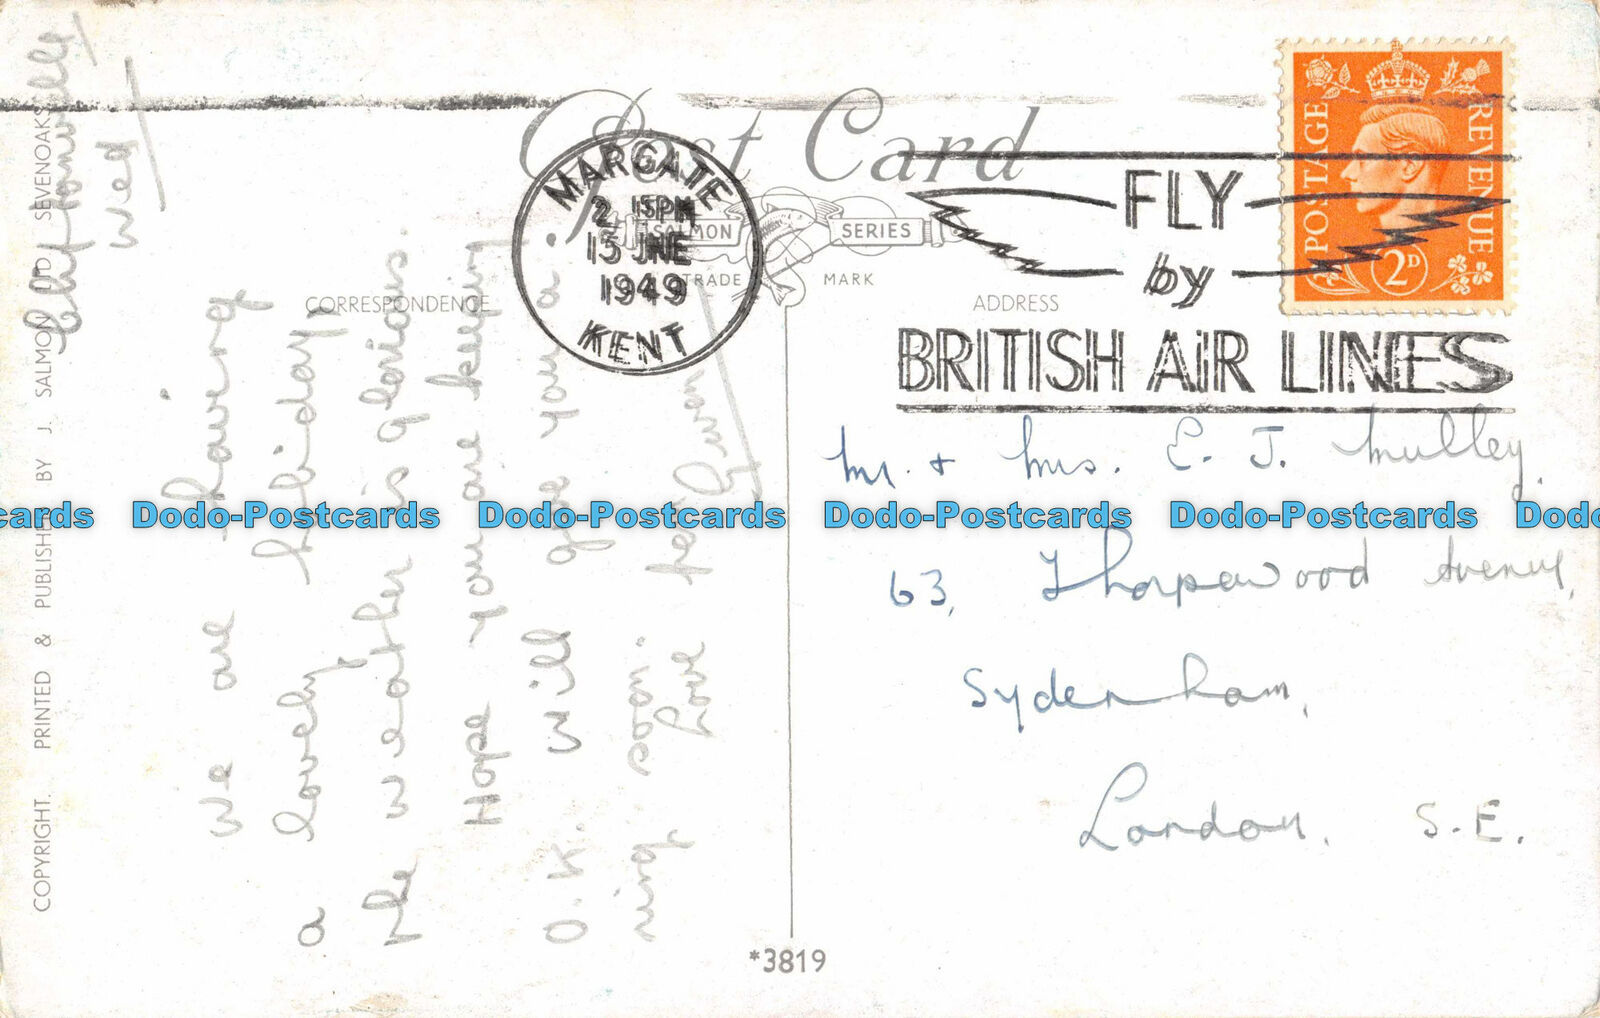 Post Card
SALMON SERIES
TRADE MARK
CORRESPONDENCE
ADDRESS
MARGATE
2 15 PM
15 JNE
1949
KENT
FLY
by
BRITISH AIR LINES
POSTAGE
REVENUE
2D
Cliftonville
Wed
We are having
a lovely holiday
the weather is glorious.
Hope you are keeping
O.K. Will give you a
ring soon.
Love
Mr. + Mrs. E. J. Mulley.
63, Thorpewood Avenue,
Sydenham,
London. S.E.
COPYRIGHT. PRINTED & PUBLISHED BY J. SALMON LTD SEVENOAKS
*3819
Dodo-Postcards Dodo-Postcards Dodo-Postcards Dodo-Postcards